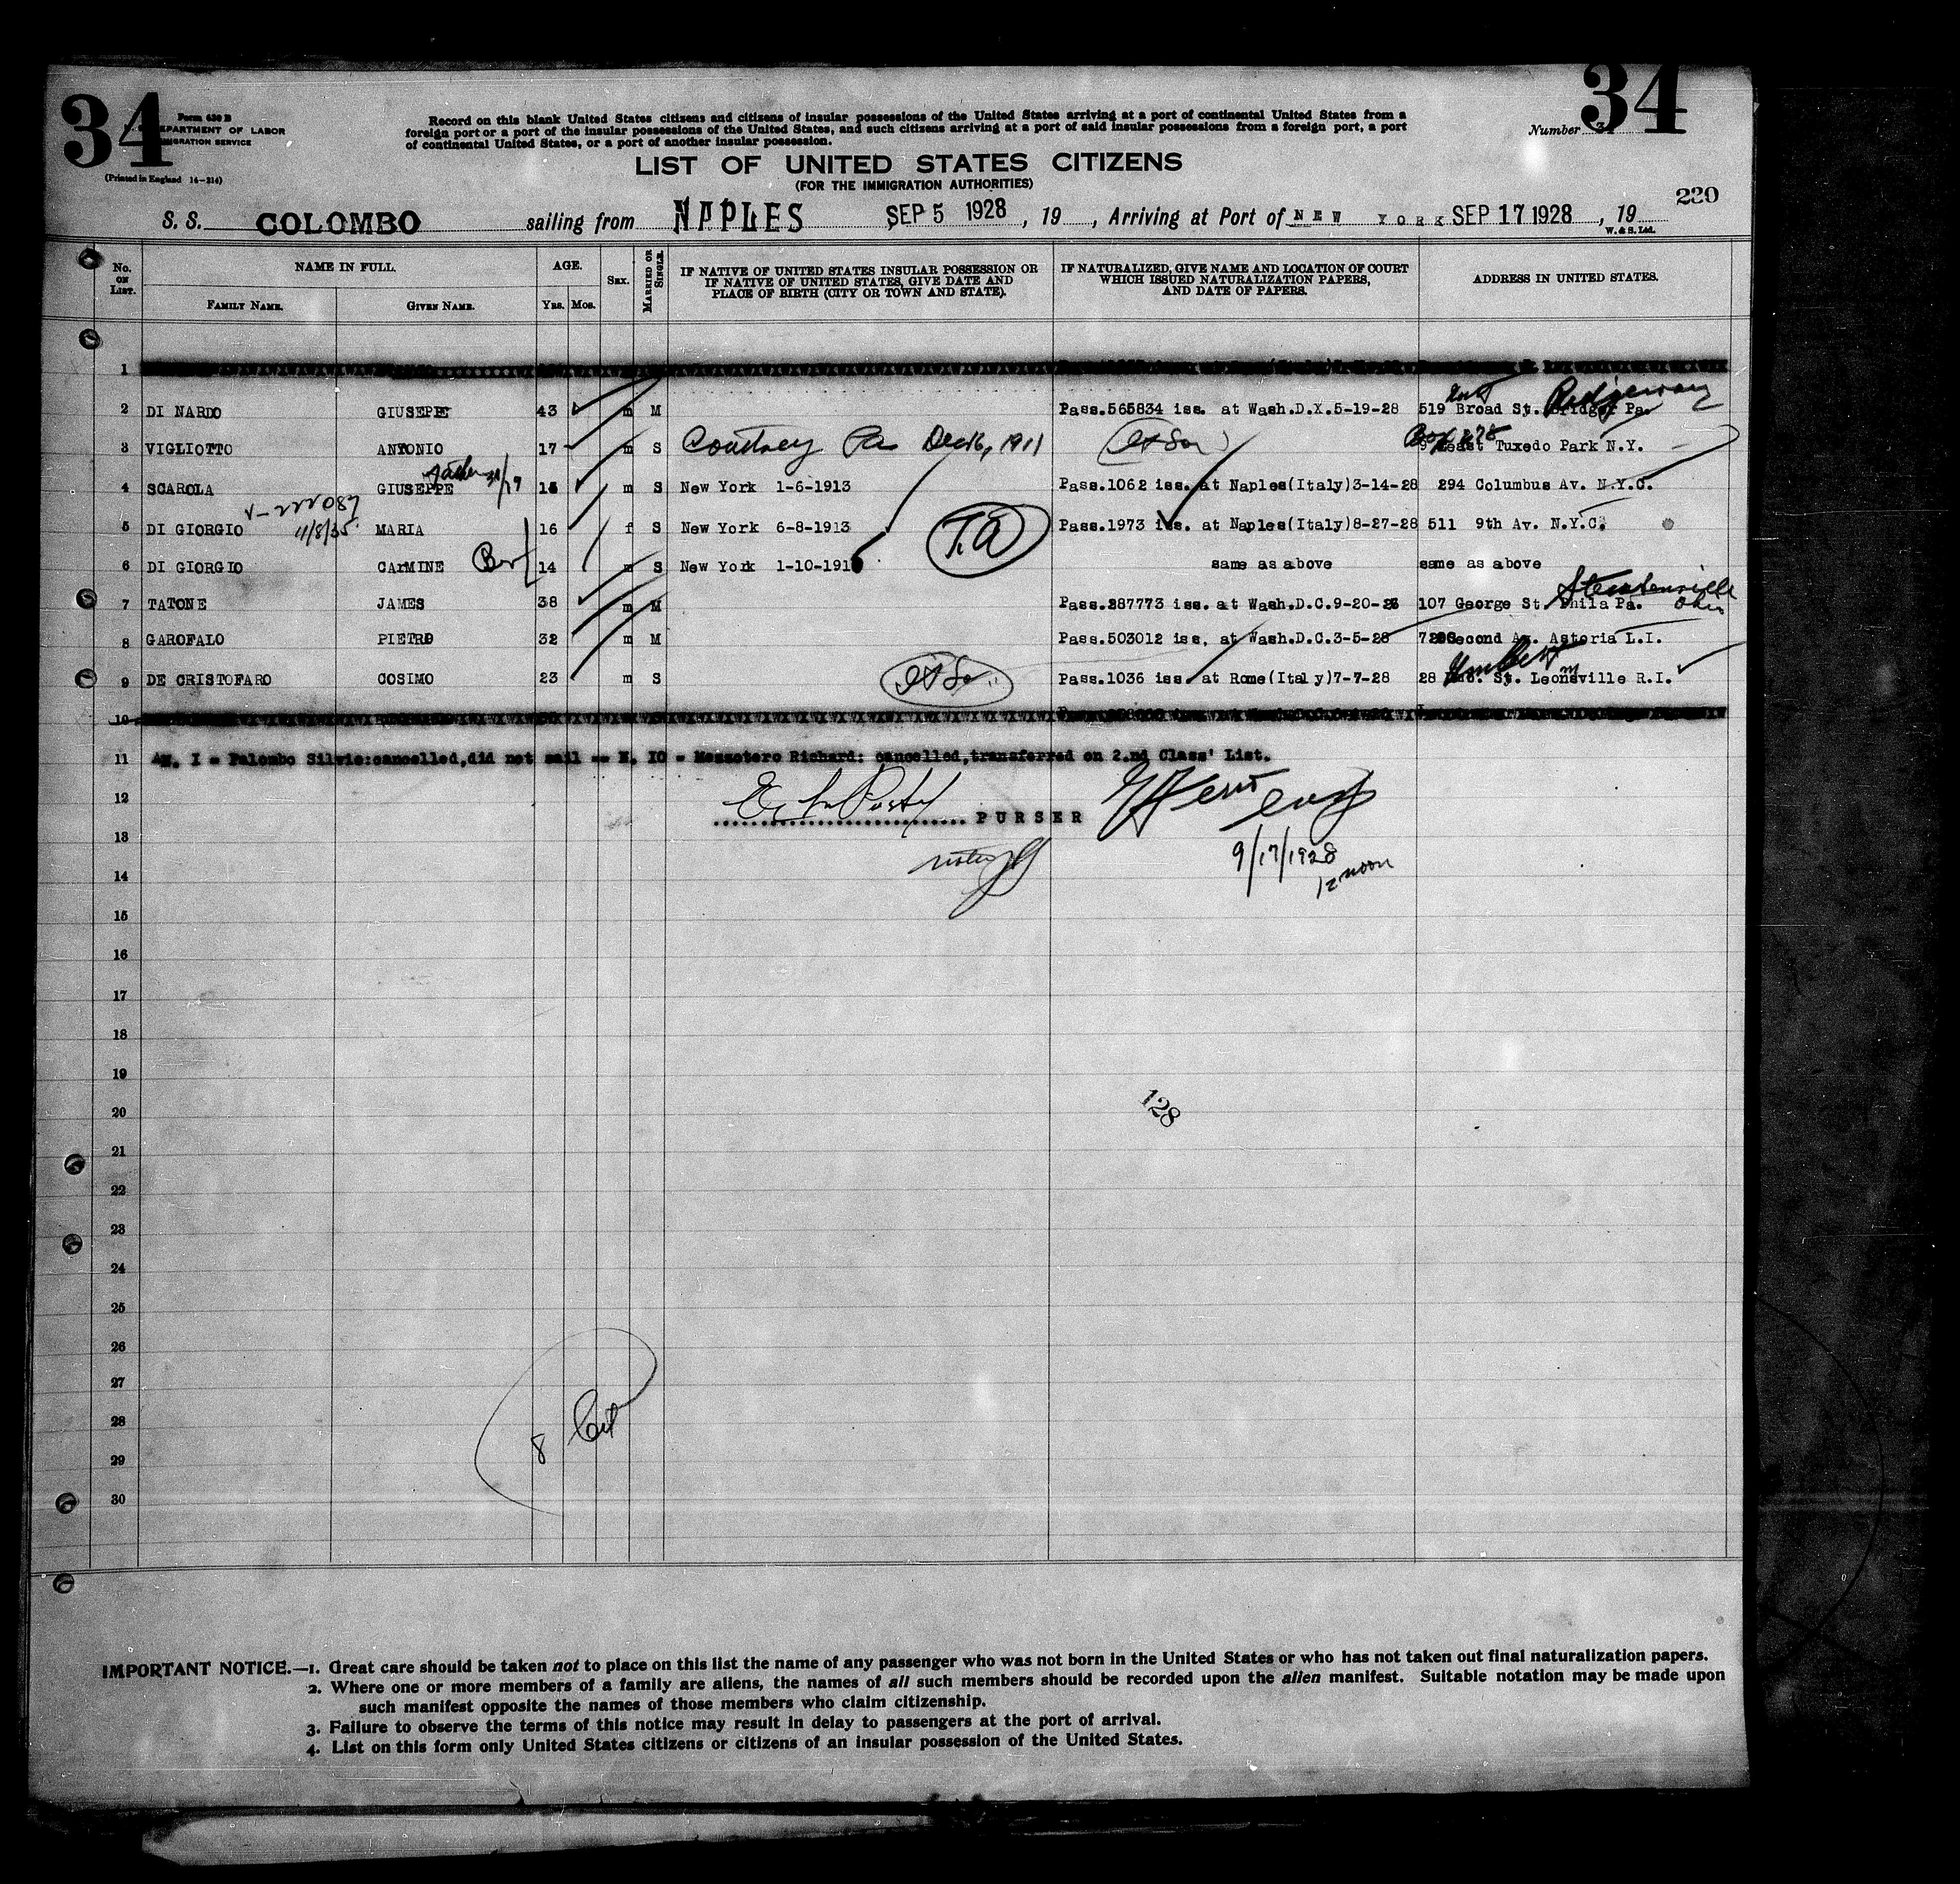 34
34
Form 630 B
DEPARTMENT OF LABOR
IMMIGRATION SERVICE
(Printed in England 14-214)
Record on this blank United States citizens and citizens of insular possessions of the United States arriving at a port of continental United States from a
foreign port or a port of the insular possessions of the United States, and such citizens arriving at a port of said insular possessions from a foreign port, a port
of continental United States, or a port of another insular possession.
Number
LIST OF UNITED STATES CITIZENS
(FOR THE IMMIGRATION AUTHORITIES)
230
S. S. COLOMBO sailing from NAPLES SEP 5 1928, 19, Arriving at Port of NEW YORK SEP 17 1928, 19
W. & S. Ltd.
No. ON LIST. NAME IN FULL. AGE. Sex. MARRIED OR SINGLE. IF NATIVE OF UNITED STATES INSULAR POSSESSION OR IF NATIVE OF UNITED STATES, GIVE DATE AND PLACE OF BIRTH (CITY OR TOWN AND STATE). IF NATURALIZED, GIVE NAME AND LOCATION OF COURT WHICH ISSUED NATURALIZATION PAPERS, AND DATE OF PAPERS. ADDRESS IN UNITED STATES.
FAMILY NAME. GIVEN NAME. Yrs. Mos.
1
Ridgeway
2 DI NARDO GIUSEPPE 43 m M Pass.565834 iss. at Wash.D.X.5-19-28 519 Broad St. Pa.
3 VIGLIOTTO ANTONIO 17 m S Courtney Pa Dec 16, 1911 Box 278 East Tuxedo Park N.Y.
4 SCAROLA GIUSEPPE 15 m S New York 1-6-1913 Pass.1062 iss. at Naples(Italy)3-14-28 294 Columbus Av. N.Y.C.
V-222087
11/8/35
5 DI GIORGIO MARIA 16 f S New York 6-8-1913 T.A Pass.1973 iss. at Naples(Italy)8-27-28 511 9th Av. N.Y.C.
6 DI GIORGIO CArMINE 14 m S New York 1-10-1916 same as above same as above
Steubenville Ohio
7 TATONE JAMES 38 m M Pass.287773 iss. at Wash.D.C.9-20-26 107 George St. Phila Pa.
8 GAROFALO PIETRO 32 m M Pass.503012 iss. at Wash.D.C.3-5-28 Second Av. Astoria L.I.
9 DE CRISTOFARO COSIMO 23 m S Pass.1036 iss. at Rome(Italy)7-7-28 28 St. Leonsville R.I.
10
11 I = Palombo Silvio:cancelled,did not sail -- N. IO = Messotero Richard: cancelled,transferred on 2.nd Class' List.
12
PURSER
13
9/17/1928
12 noon
14
15
16
17
18
19
128
20
21
22
23
24
25
26
27
28
8 Cit
29
30
IMPORTANT NOTICE.—1. Great care should be taken not to place on this list the name of any passenger who was not born in the United States or who has not taken out final naturalization papers.
2. Where one or more members of a family are aliens, the names of all such members should be recorded upon the alien manifest. Suitable notation may be made upon
such manifest opposite the names of those members who claim citizenship.
3. Failure to observe the terms of this notice may result in delay to passengers at the port of arrival.
4. List on this form only United States citizens or citizens of an insular possession of the United States.